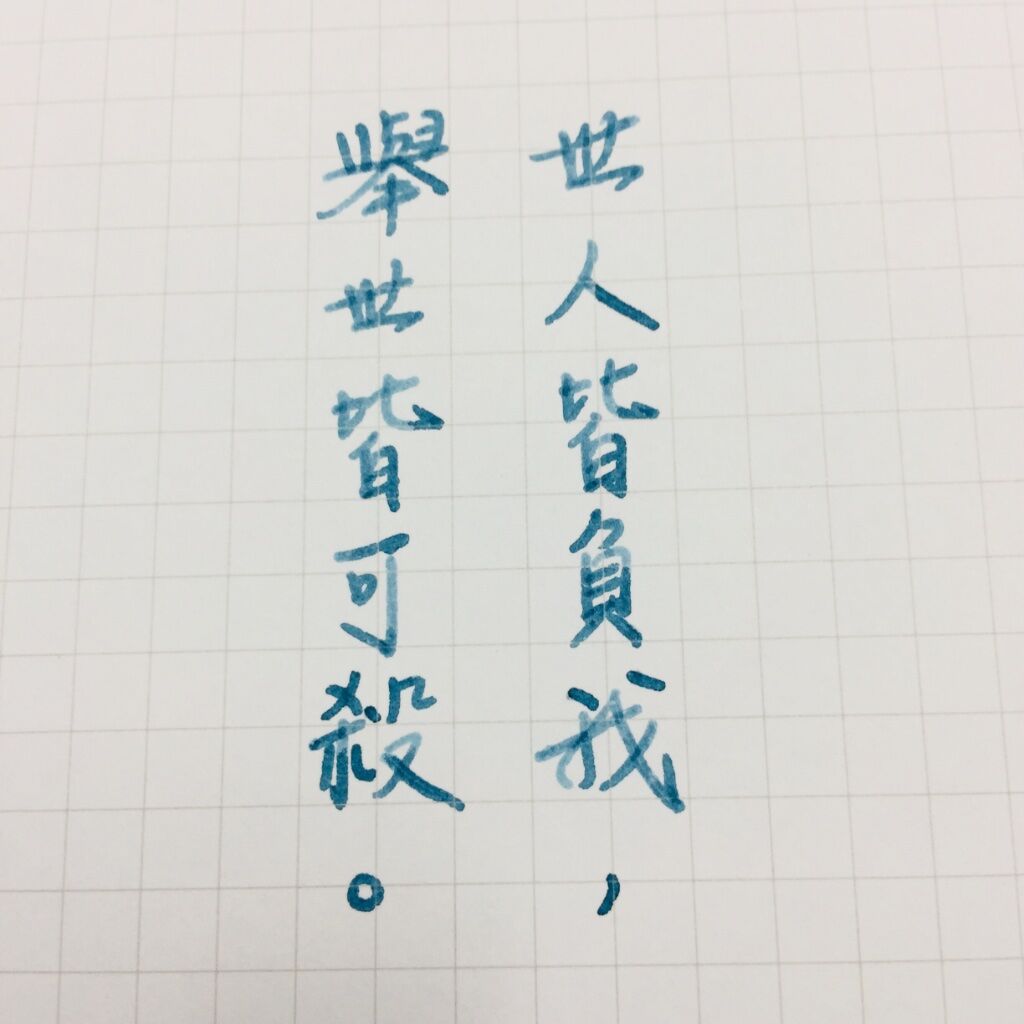 世人皆負我，
舉世皆可殺。